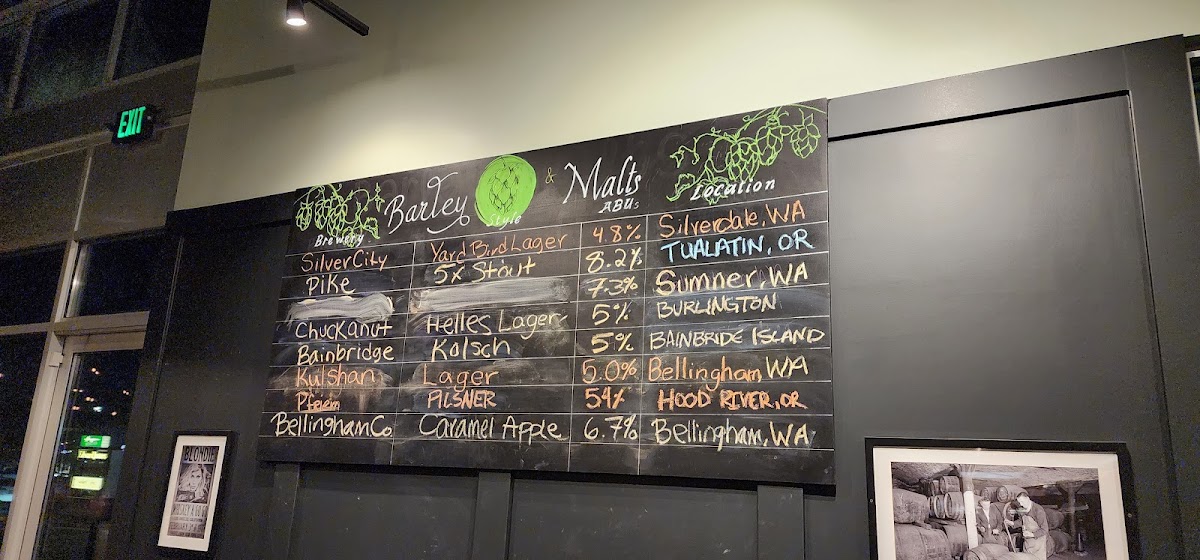 EXIT
Barley & Malts
Brewery Style ABUs Location
Silver City Yard Bird Lager 4.8% Silverdale, WA
Pike 5X Stout 8.2% TUALATIN, OR
7.3% Sumner, WA
Chuckanut Helles Lager 5% BURLINGTON
Bainbridge Kolsch 5% BAINBRIDE ISLAND
Kulshan Lager 5.0% Bellingham, WA
Pfreim PILSNER 54% HOOD RIVER, OR
Bellingham Co. Caramel Apple 6.7% Bellingham, WA
BLONDIE